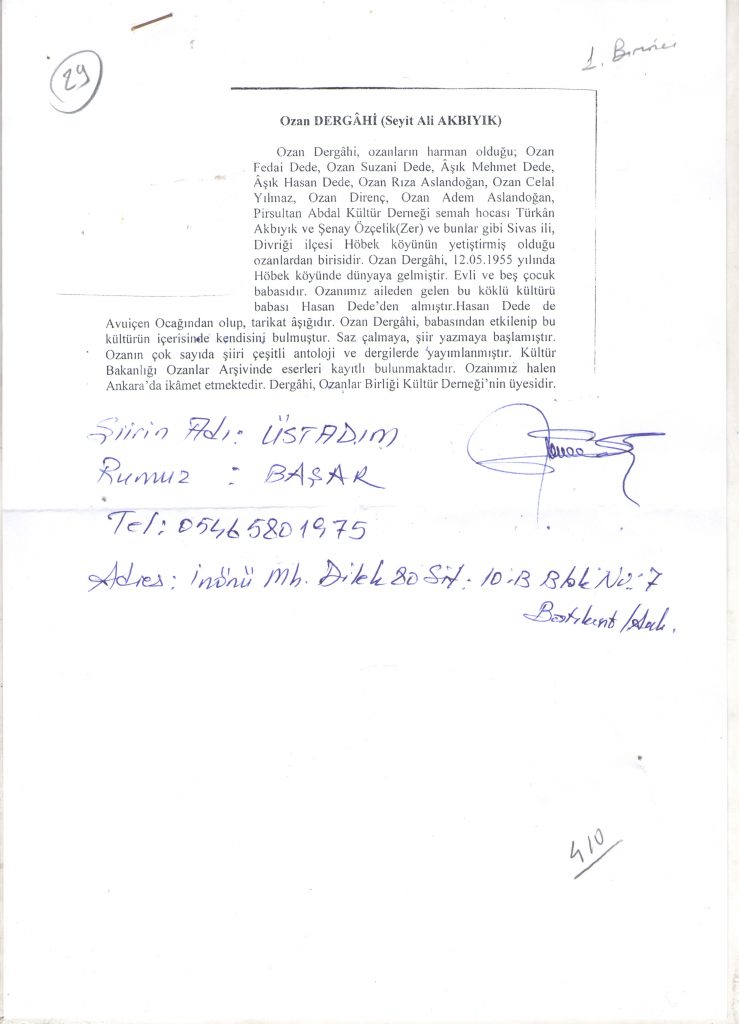 29
1. Birinci
Ozan DERGÂHİ (Seyit Ali AKBIYIK)
Ozan Dergâhi, ozanların harman olduğu; Ozan
Fedai Dede, Ozan Suzani Dede, Âşık Mehmet Dede,
Âşık Hasan Dede, Ozan Rıza Aslandoğan, Ozan Celal
Yılmaz, Ozan Direnç, Ozan Adem Aslandoğan,
Pirsultan Abdal Kültür Derneği semah hocası Türkân
Akbıyık ve Şenay Özçelik(Zer) ve bunlar gibi Sivas ili,
Divriği ilçesi Höbek köyünün yetiştirmiş olduğu
ozanlardan birisidir. Ozan Dergâhi, 12.05.1955 yılında
Höbek köyünde dünyaya gelmiştir. Evli ve beş çocuk
babasıdır. Ozanımız aileden gelen bu köklü kültürü
babası Hasan Dede'den almıştır.Hasan Dede de
Avuiçen Ocağından olup, tarikat âşığıdır. Ozan Dergâhi, babasından etkilenip bu
kültürün içerisinde kendisini bulmuştur. Saz çalmaya, şiir yazmaya başlamıştır.
Ozanın çok sayıda şiiri çeşitli antoloji ve dergilerde yayımlanmıştır. Kültür
Bakanlığı Ozanlar Arşivinde eserleri kayıtlı bulunmaktadır. Ozanımız halen
Ankara'da ikâmet etmektedir. Dergâhi, Ozanlar Birliği Kültür Derneği'nin üyesidir.
Şiirin Adı: ÜSTADIM
Rumuz : BAŞAR
Tel: 05465801975
Adres: İnönü Mh. Dilek 80 Sit. 10-B Blok No: 7
Batıkent/Ank.
410